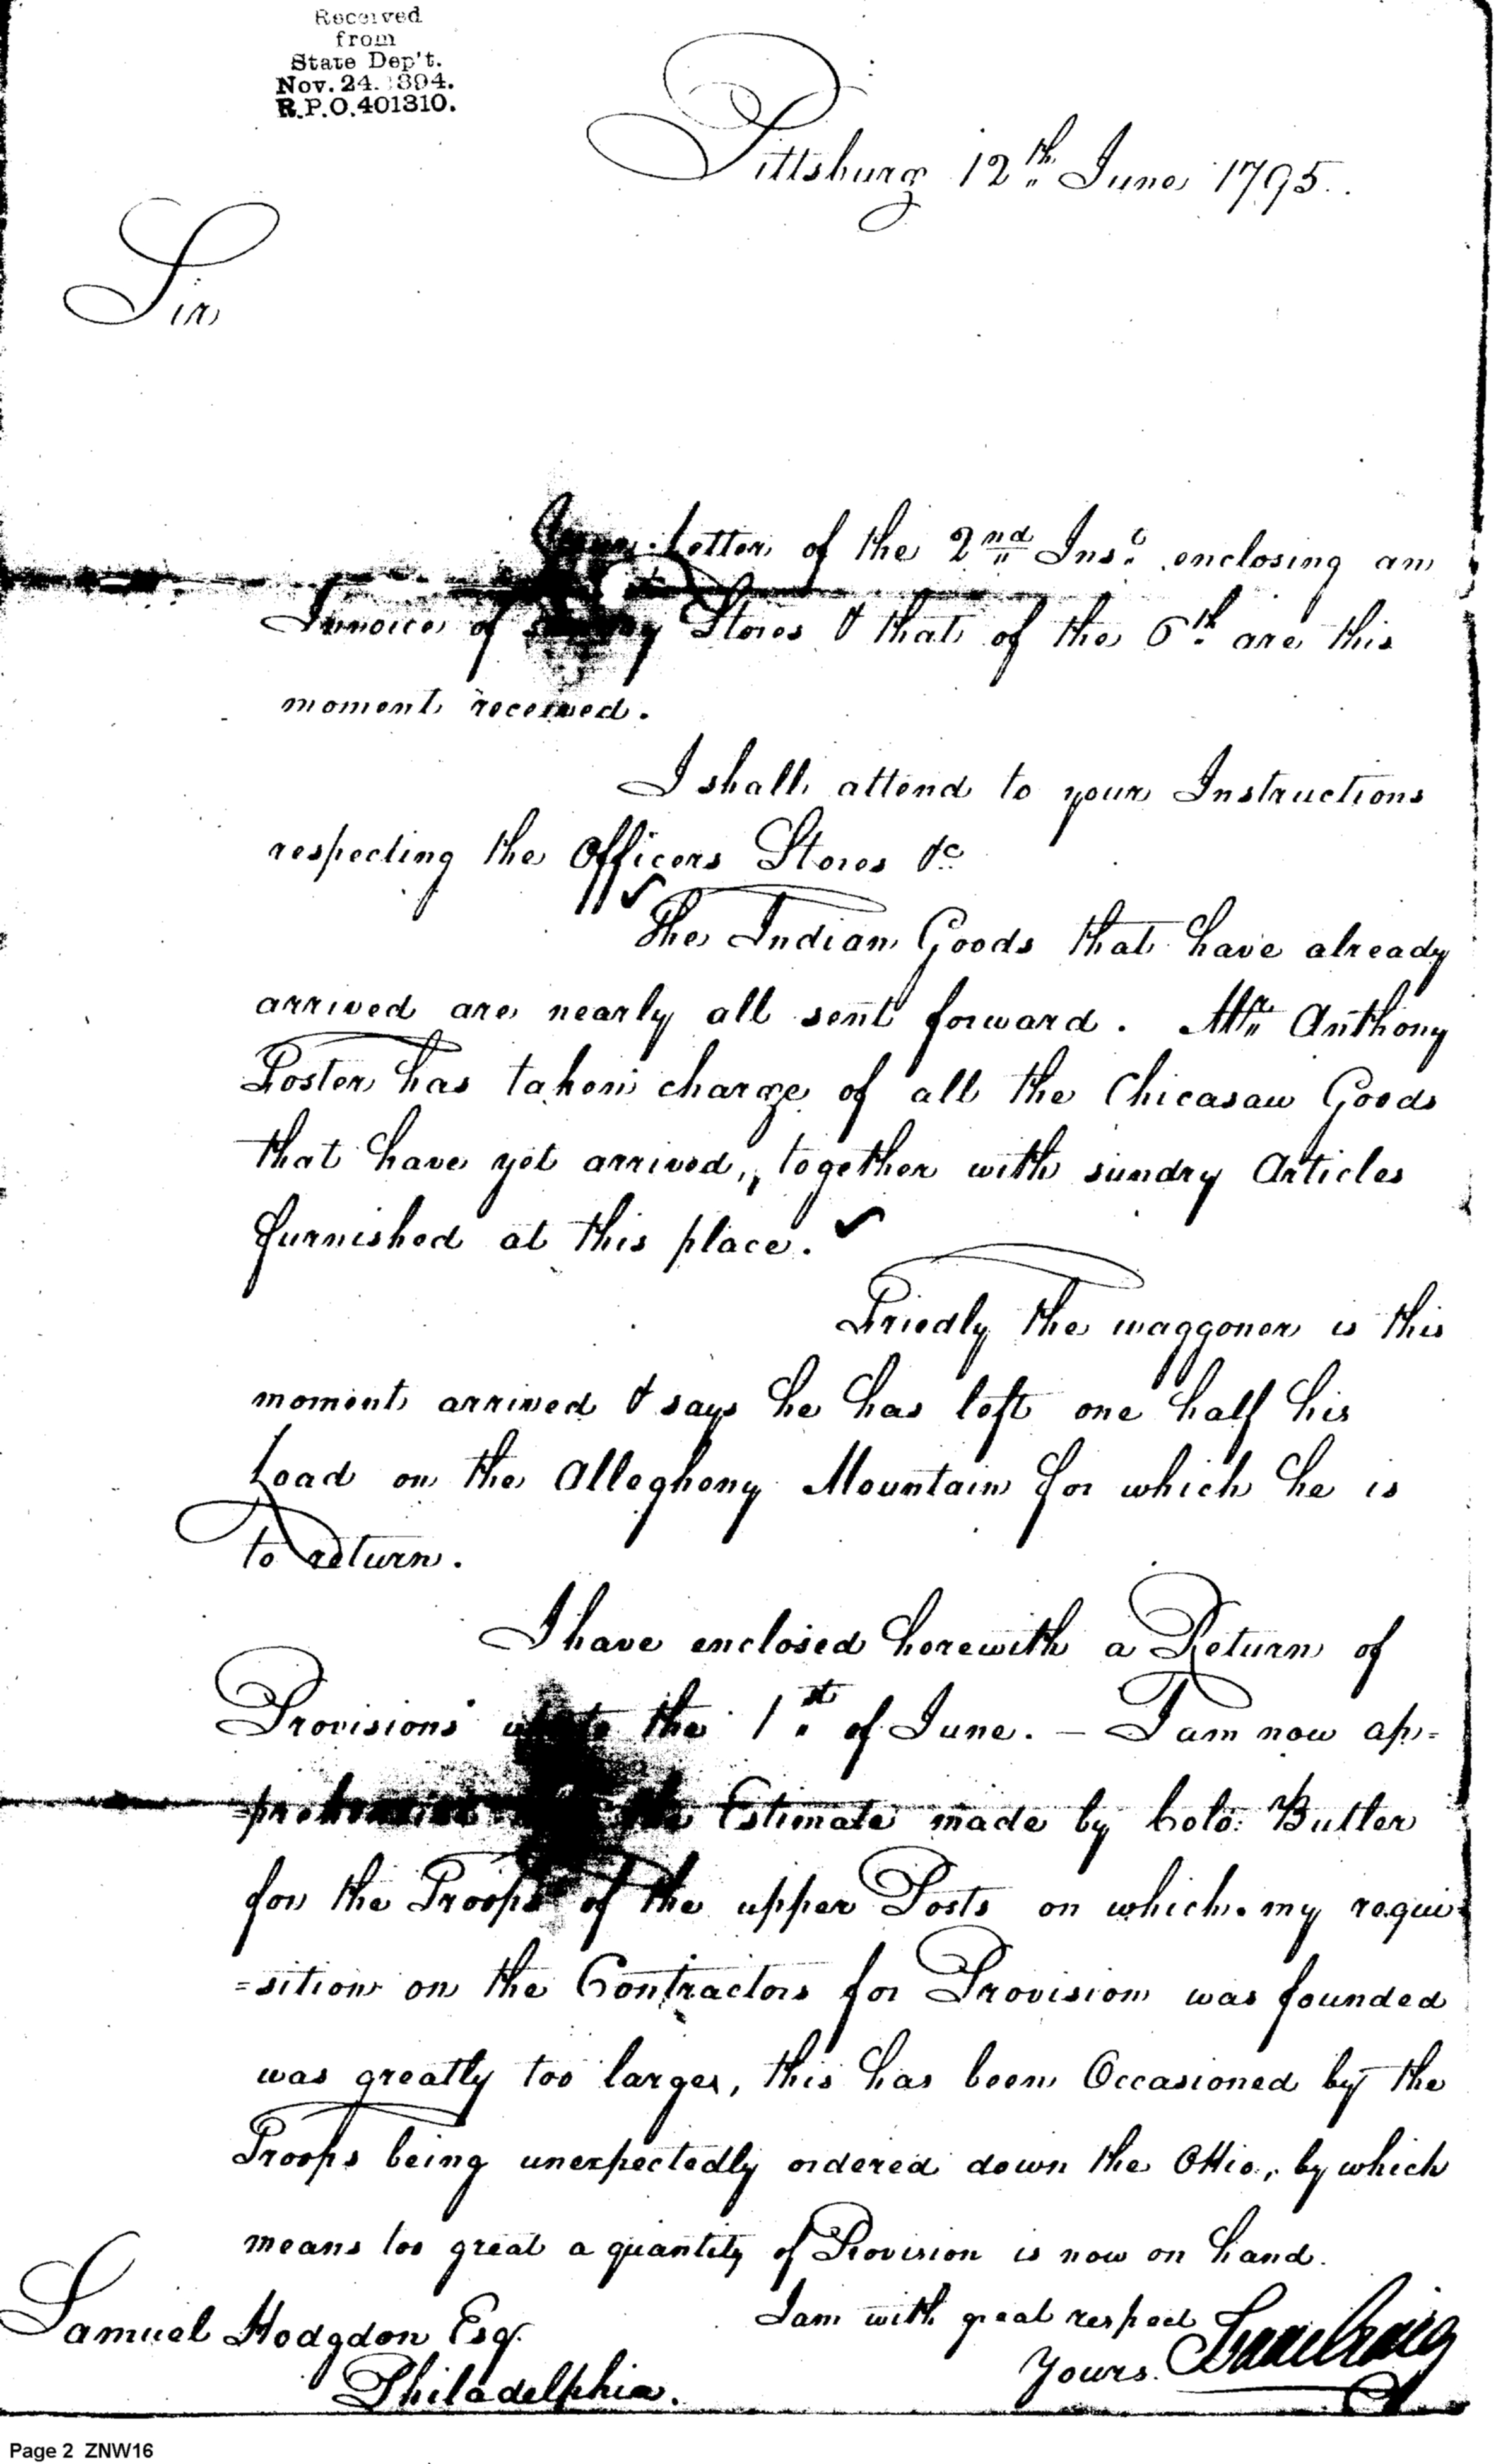 Received
from
State Dep't.
Nov. 24. 1894.
R.P.O. 401310.
Pittsburg 12th June 1795.
Sir
Your Letter of the 2nd Inst. enclosing an
Invoice of Stores & that of the 6th are this
moment received.
I shall attend to your Instructions
respecting the Officers Stores &c
The Indian Goods that have already
arrived are nearly all sent forward. Mr. Anthony
Foster has taken charge of all the Chicasaw Goods
that have yet arrived, together with sundry Articles
furnished at this place.
Friedly the waggoner is this
moment arrived & says he has left one half his
Load on the Alleghony Mountain for which he is
to return.
I have enclosed herewith a Return of
Provisions the 1st of June. — I am now ap=
the Estimate made by Colo. Butler
for the Troops of the upper Posts on which my requi
=sition on the Contractors for Provision was founded
was greatly too large, this has been Occasioned by the
Troops being unexpectedly ordered down the Ohio, by which
means too great a quantity of Provision is now on hand.
I am with great respect
Yours. Isaac Craig
Samuel Hodgdon Esq.
Philadelphia.
Page 2 ZNW16